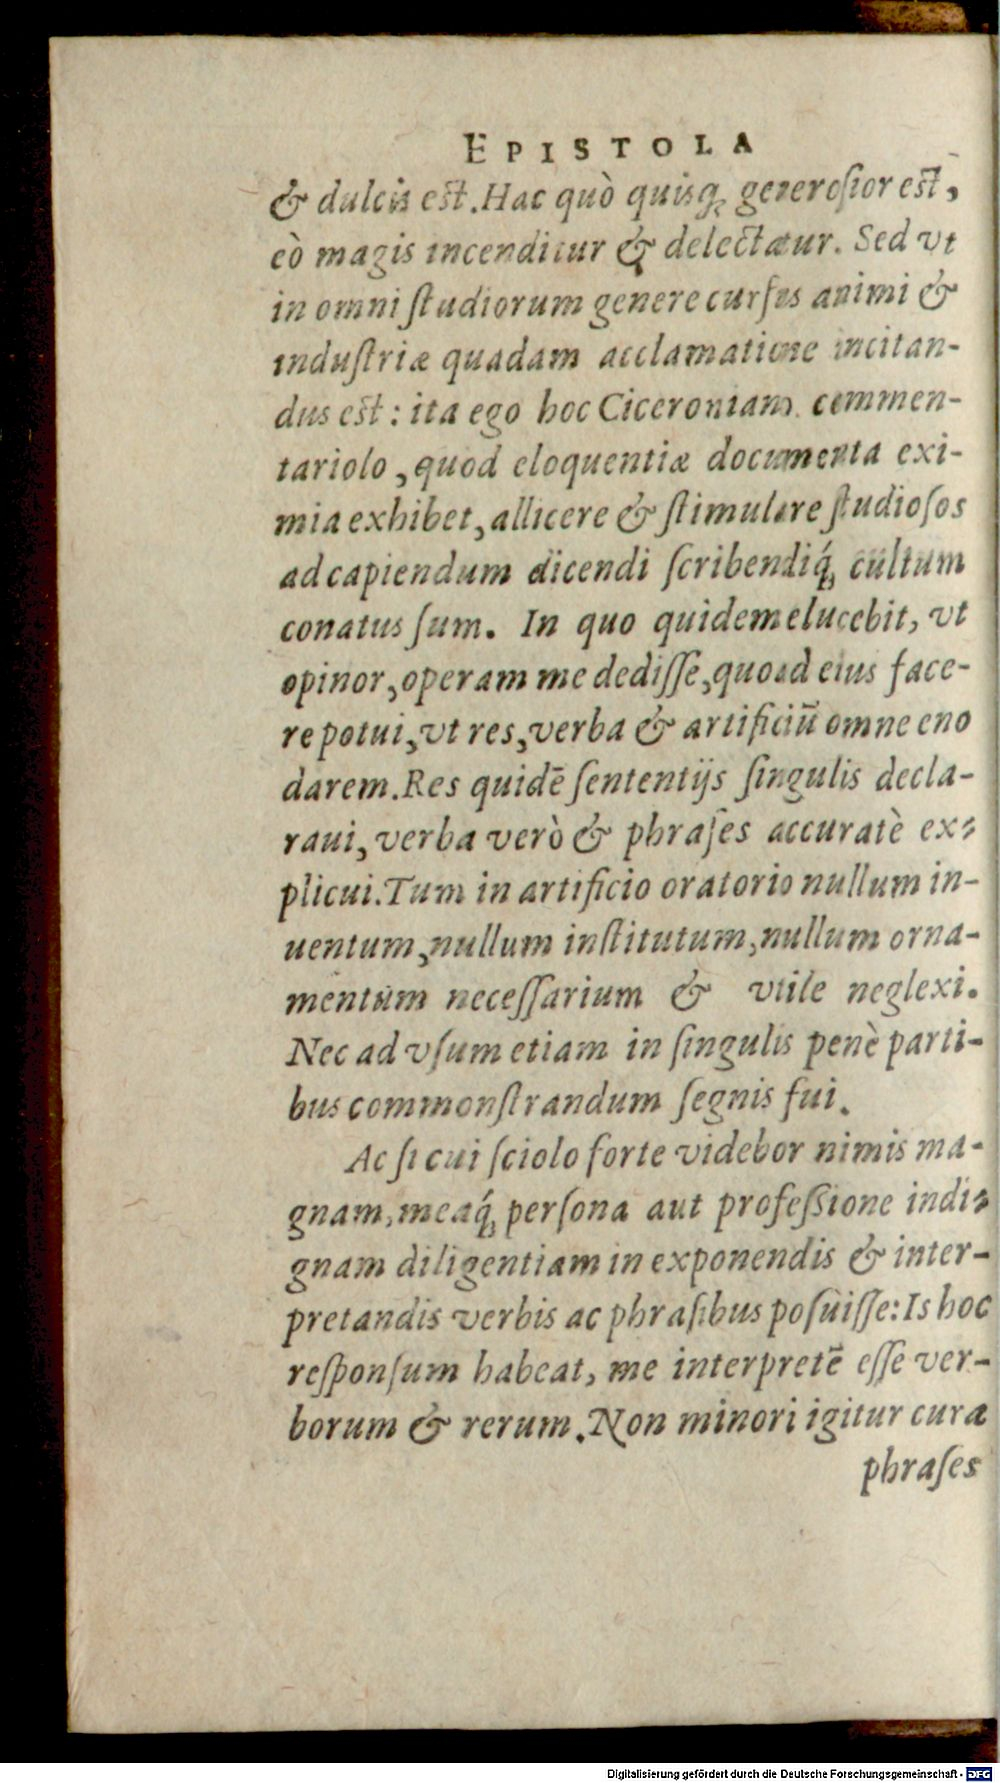 EPISTOLA
& dulcis est. Hac quò quisq; generosior est,
eò magis incenditur & delectatur. Sed vt
in omni ſtudiorum genere curſus animi &
induſtriæ quadam acclamatione incitan-
dus est: ita ego hoc Ciceroniam commen-
tariolo, quod eloquentiæ documenta exi-
mia exhibet, allicere & ſtimulare ſtudioſos
ad capiendum dicendi ſcribendiq́; cultum
conatus ſum. In quo quidem elucebit, vt
opinor, operam me dediſſe, quoad eius face-
re potui, vt res, verba & artificiũ omne eno
darem. Res quidẽ ſententijs ſingulis decla-
raui, verba verò & phraſes accuratè ex-
plicui. Tum in artificio oratorio nullum in-
uentum, nullum inſtitutum, nullum orna-
mentum neceſſarium & vtile neglexi.
Nec ad vſum etiam in ſingulis penè parti-
bus commonſtrandum ſegnis fui.
Ac ſi cui ſciolo forte videbor nimis ma-
gnam, meaq́; perſona aut profeſſione indi-
gnam diligentiam in exponendis & inter-
pretandis verbis ac phraſibus poſuiſſe: Is hoc
reſponſum habeat, me interpretẽ eſſe ver-
borum & rerum. Non minori igitur cura
phraſes
Digitalisierung gefördert durch die Deutsche Forschungsgemeinschaft - DFG